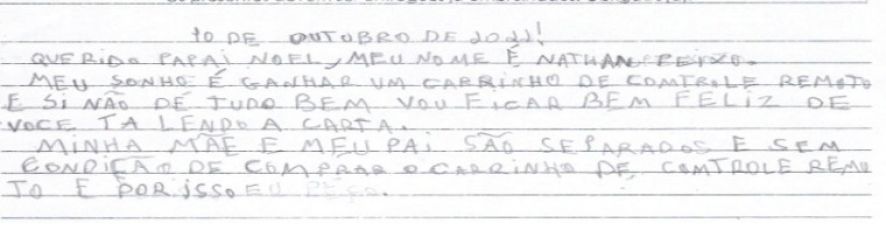 10 DE OUTUBRO DE 2022!
QUERIDO PAPAI NOEL, MEU NOME É NATHAN PEIXO.
MEU SONHO É GANHAR UM CARRINHO DE COMTROLE REMOTO
E SI NÃO DÉ TUDO BEM VOU FICAR BEM FELIZ DE
VOCE TA LENDO A CARTA.
MINHA MÃE E MEU PAI SÃO SEPARADOS E SEM
CONDIÇÃO DE COMPRAR O CARRINHO DE COMTROLE REMO
TO E POR ISSO EU PEÇO.